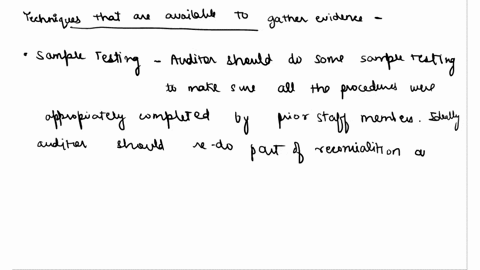 Techniques that are available to gather evidence -
• Sample Testing - Auditor should do some sample testing
to make sure all the procedures were
appropiately completed by prior staff members. Ideally
auditor should re-do part of